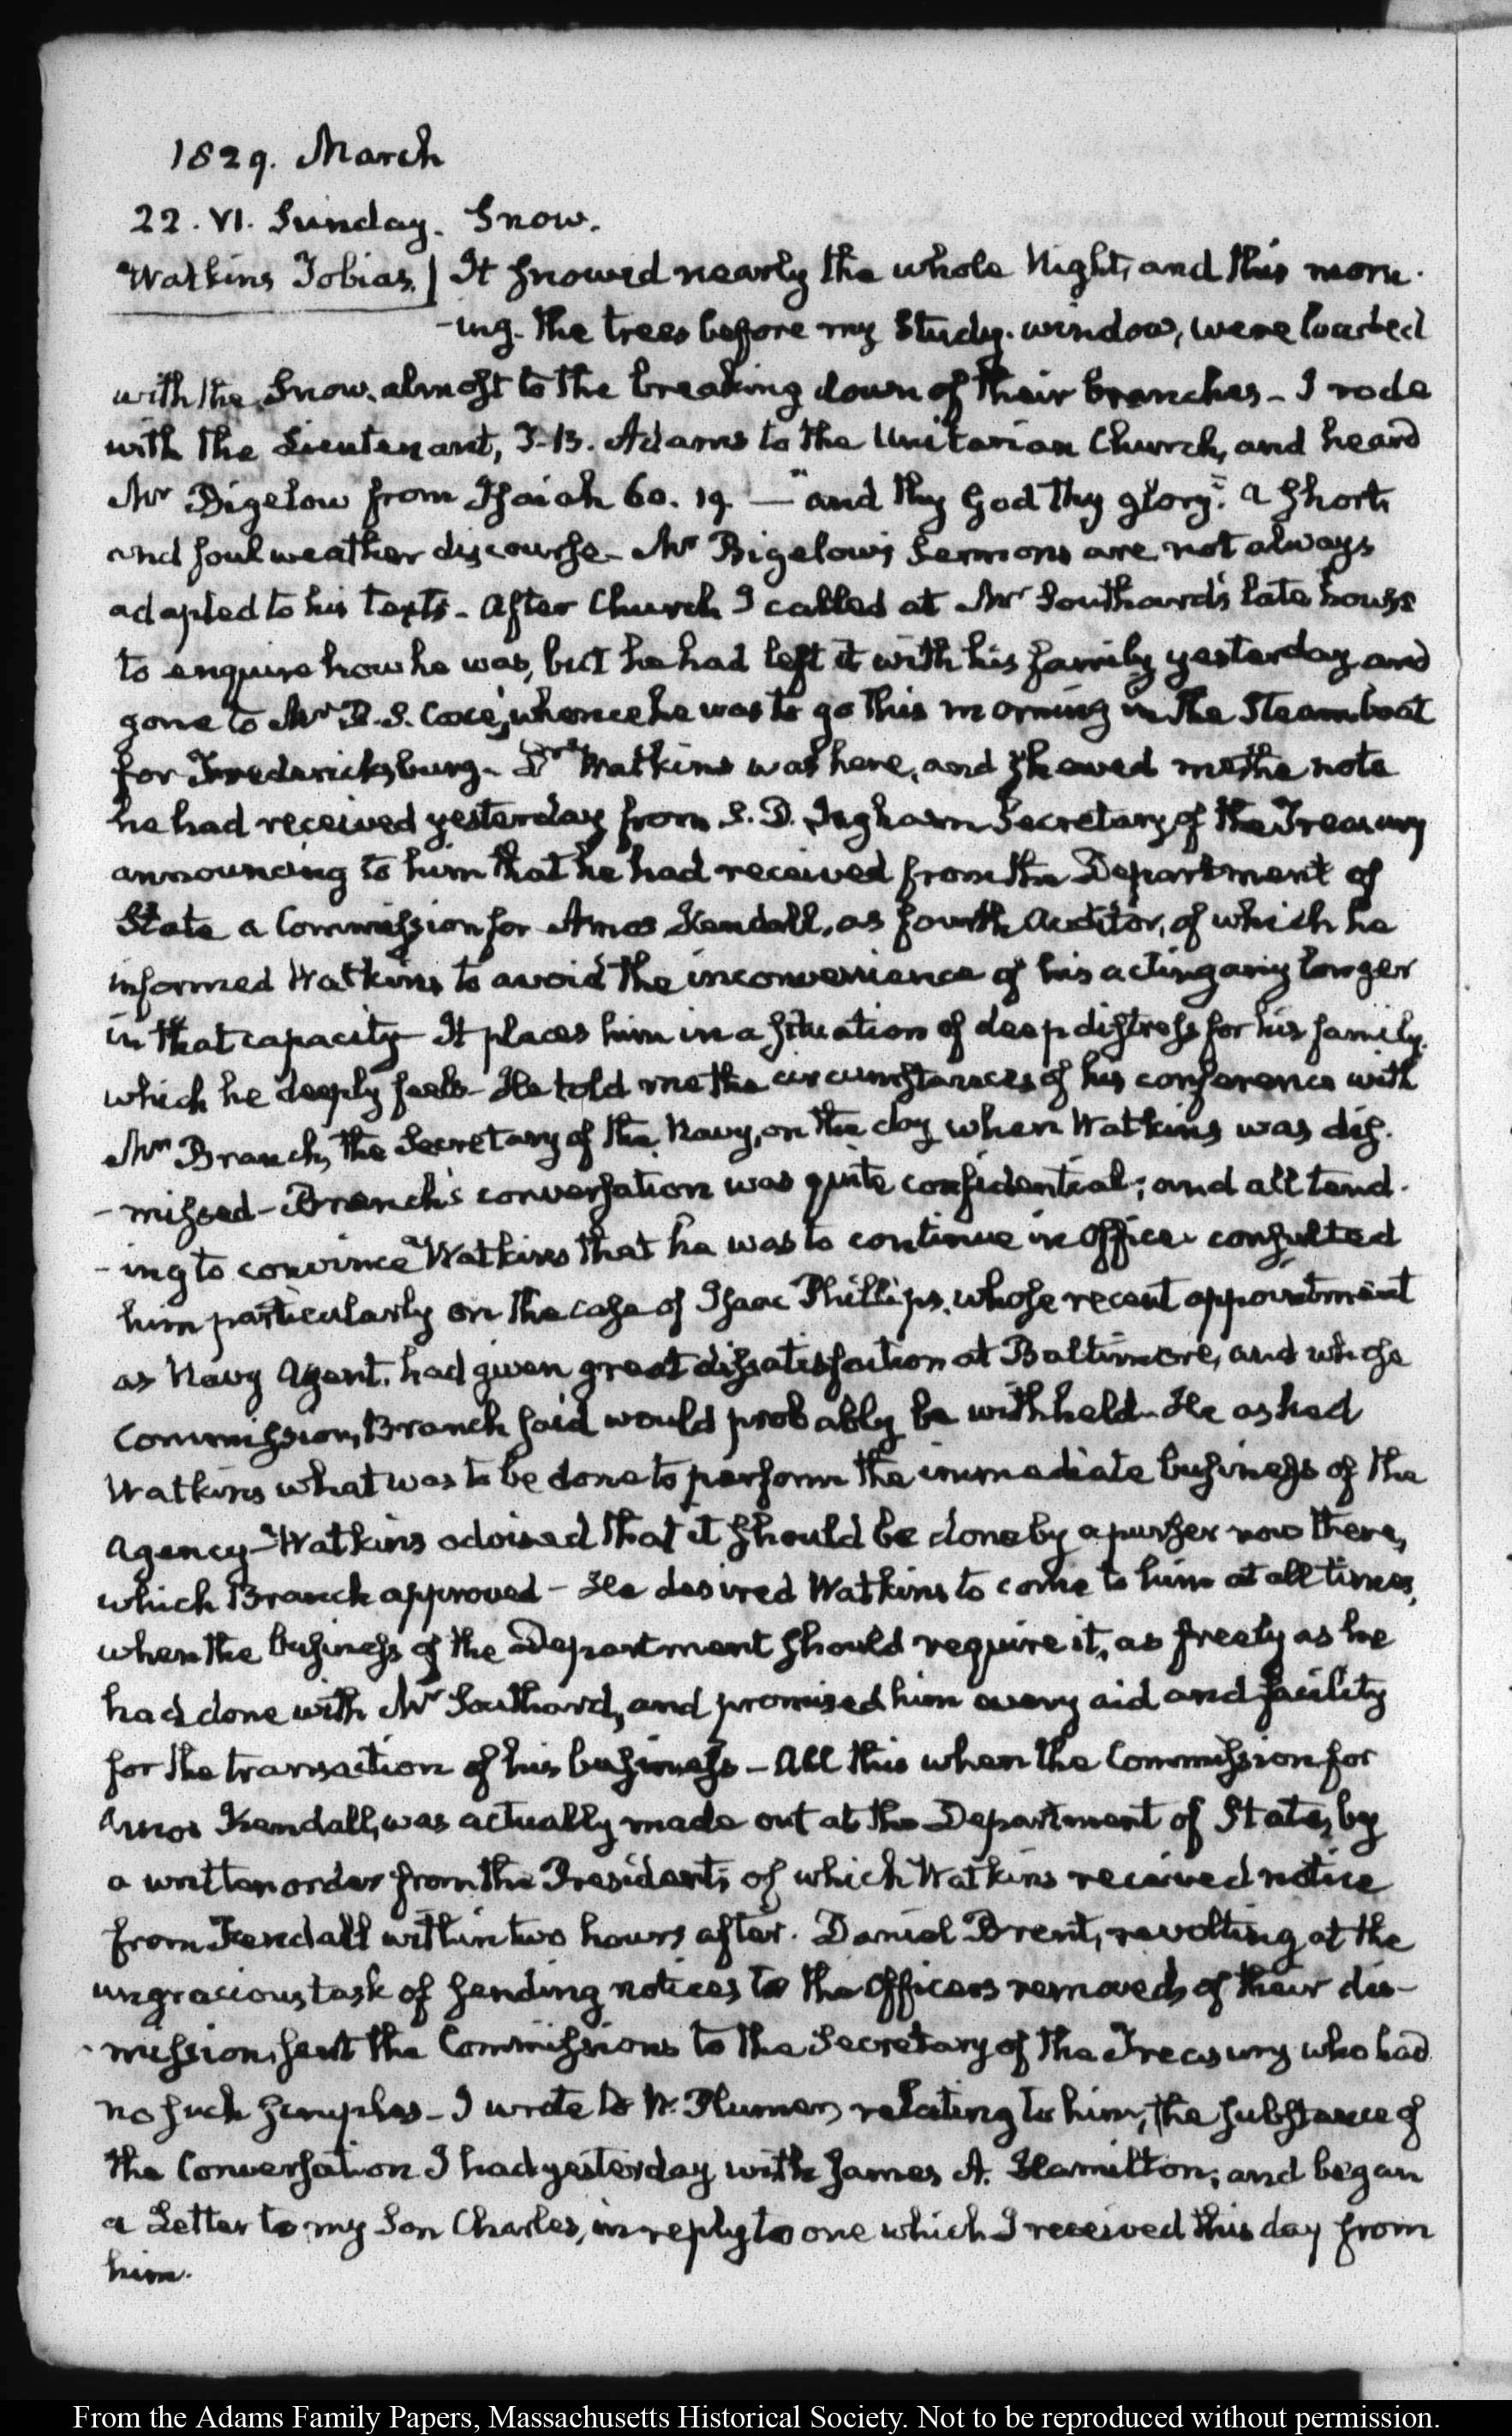 1829. March
22. VI. Sunday. Snow.
Watkins Tobias. It snowed nearly the whole Night, and this morn-
-ing. The trees before my Study-window, were loaded
with the Snow, almost to the breaking down of their branches - I rode
with the Lieutenant, T. B. Adams to the Unitarian Church, and heard
Mr Bigelow from Isaiah 60. 19 — "and thy God thy glory." A short,
and foul weather discourse - Mr Bigelow's Sermons are not always
adapted to his texts - After Church I called at Mr Southard's late house
to enquire how he was, but he had left it with his family yesterday and
gone to Mr R. S. Coxe's, whence he was to go this morning in the Steamboat
for Fredericksburg - Dr Watkins was here, and shewed me the note
he had received yesterday from S. D. Ingham Secretary of the Treasury
announcing to him that he had received from the Department of
State a Commission for Amos Kendall, as fourth Auditor, of which he
informed Watkins to avoid the inconvenience of his acting any longer
in that capacity - It places him in a situation of deep distress for his family.
which he deeply feels - He told me the circumstances of his conference with
Mr Branch, the Secretary of the Navy, on the day when Watkins was dis-
-missed - Branch's conversation was quite confidential; and all tend-
-ing to convince Watkins that he was to continue in Office - consulted
him particularly on the case of Isaac Phillips, whose recent appointment
as Navy Agent, had given great dissatisfaction at Baltimore, and whose
Commission, Branch said would probably be withheld - He asked
Watkins what was to be done to perform the immediate business of the
Agency - Watkins advised that it should be done by a purser now there,
which Branch approved - He desired Watkins to come to him at all times,
when the business of the Department should require it, as freely as he
had done with Mr Southard, and promised him every aid and facility
for the transaction of his business - All this when the Commission for
Amos Kendall, was actually made out at the Department of State, by
a written order from the President; of which Watkins received notice
from Kendall within two hours after. Daniel Brent, revolting at the
ungracious task of sending notices to the Officers removed, of their dis-
-mission, sent the Commissions to the Secretary of the Treasury who had
no such scruples - I wrote to W. Plumer, relating to him, the substance of
the Conversation I had yesterday with James A. Hamilton; and began
a Letter to my Son Charles, in reply to one which I received this day from
him.
From the Adams Family Papers, Massachusetts Historical Society. Not to be reproduced without permission.